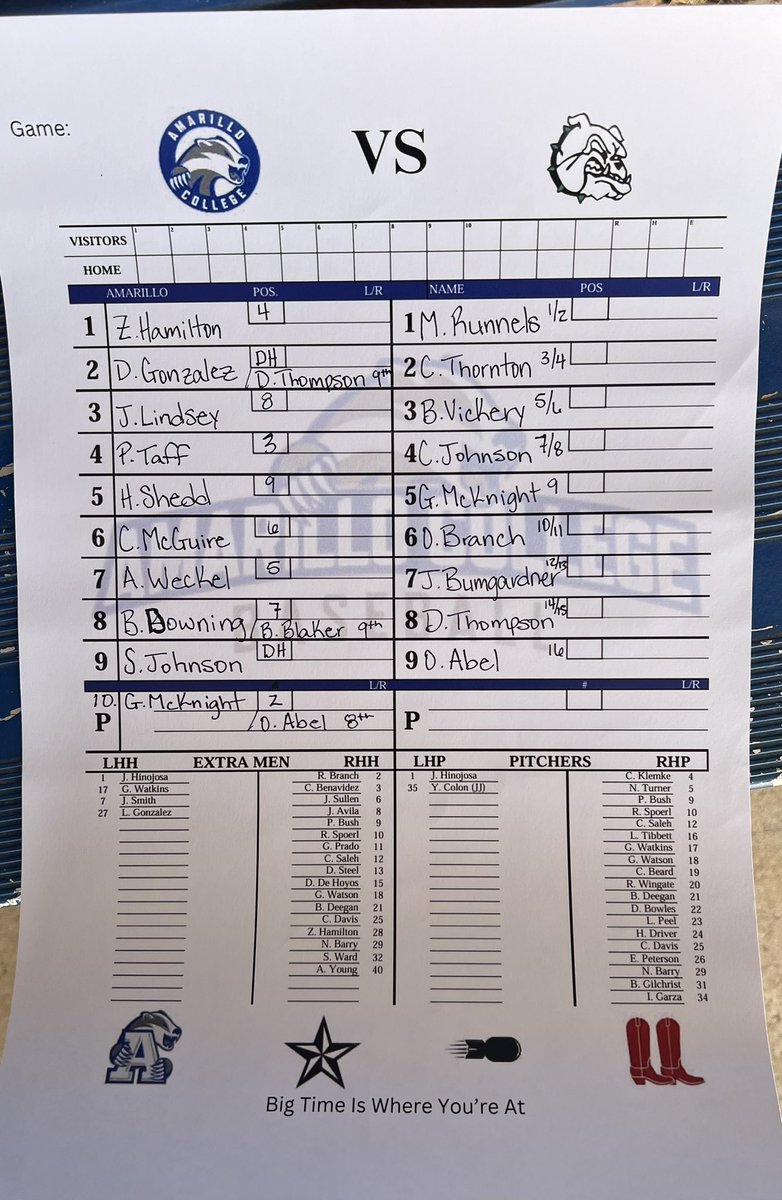 Game:
AMARILLO COLLEGE
VS
VISITORS 1 2 3 4 5 6 7 8 9 10 R H E
HOME
AMARILLO POS. L/R NAME POS L/R
1 Z. Hamilton 4 1 M. Runnels 1/2
2 D. Gonzalez DH / D. Thompson 9th 2 C. Thornton 3/4
3 J. Lindsey 8 3 B. Vickery 5/6
4 P. Taff 3 4 C. Johnson 7/8
5 H. Shedd 9 5 G. McKnight 9
6 C. McGuire 6 6 O. Branch 10/11
7 A. Weckel 5 7 J. Bumgardner 12/13
8 B. Downing 7 / B. Blaker 9th 8 D. Thompson 14/15
9 S. Johnson DH 9 O. Abel 16
L/R # L/R
10. G. McKnight 2
P / O. Abel 8th P
LHH EXTRA MEN RHH LHP PITCHERS RHP
1 J. Hinojosa R. Branch 2 1 J. Hinojosa C. Klemke 4
17 G. Watkins C. Benavidez 3 35 Y. Colon (JJ) N. Turner 5
7 J. Smith J. Sullen 6 P. Bush 9
27 L. Gonzalez J. Avila 8 R. Spoerl 10
P. Bush 9 C. Saleh 12
R. Spoerl 10 L. Tibbett 16
G. Prado 11 G. Watkins 17
C. Saleh 12 G. Watson 18
D. Steel 13 C. Beard 19
D. De Hoyos 15 R. Wingate 20
G. Watson 18 B. Deegan 21
B. Deegan 21 D. Bowles 22
C. Davis 25 L. Peel 23
Z. Hamilton 28 H. Driver 24
N. Barry 29 C. Davis 25
S. Ward 32 E. Peterson 26
A. Young 40 N. Barry 29
B. Gilchrist 31
I. Garza 34
A
Big Time Is Where You're At
AMARILLO COLLEGE
BASEBALL